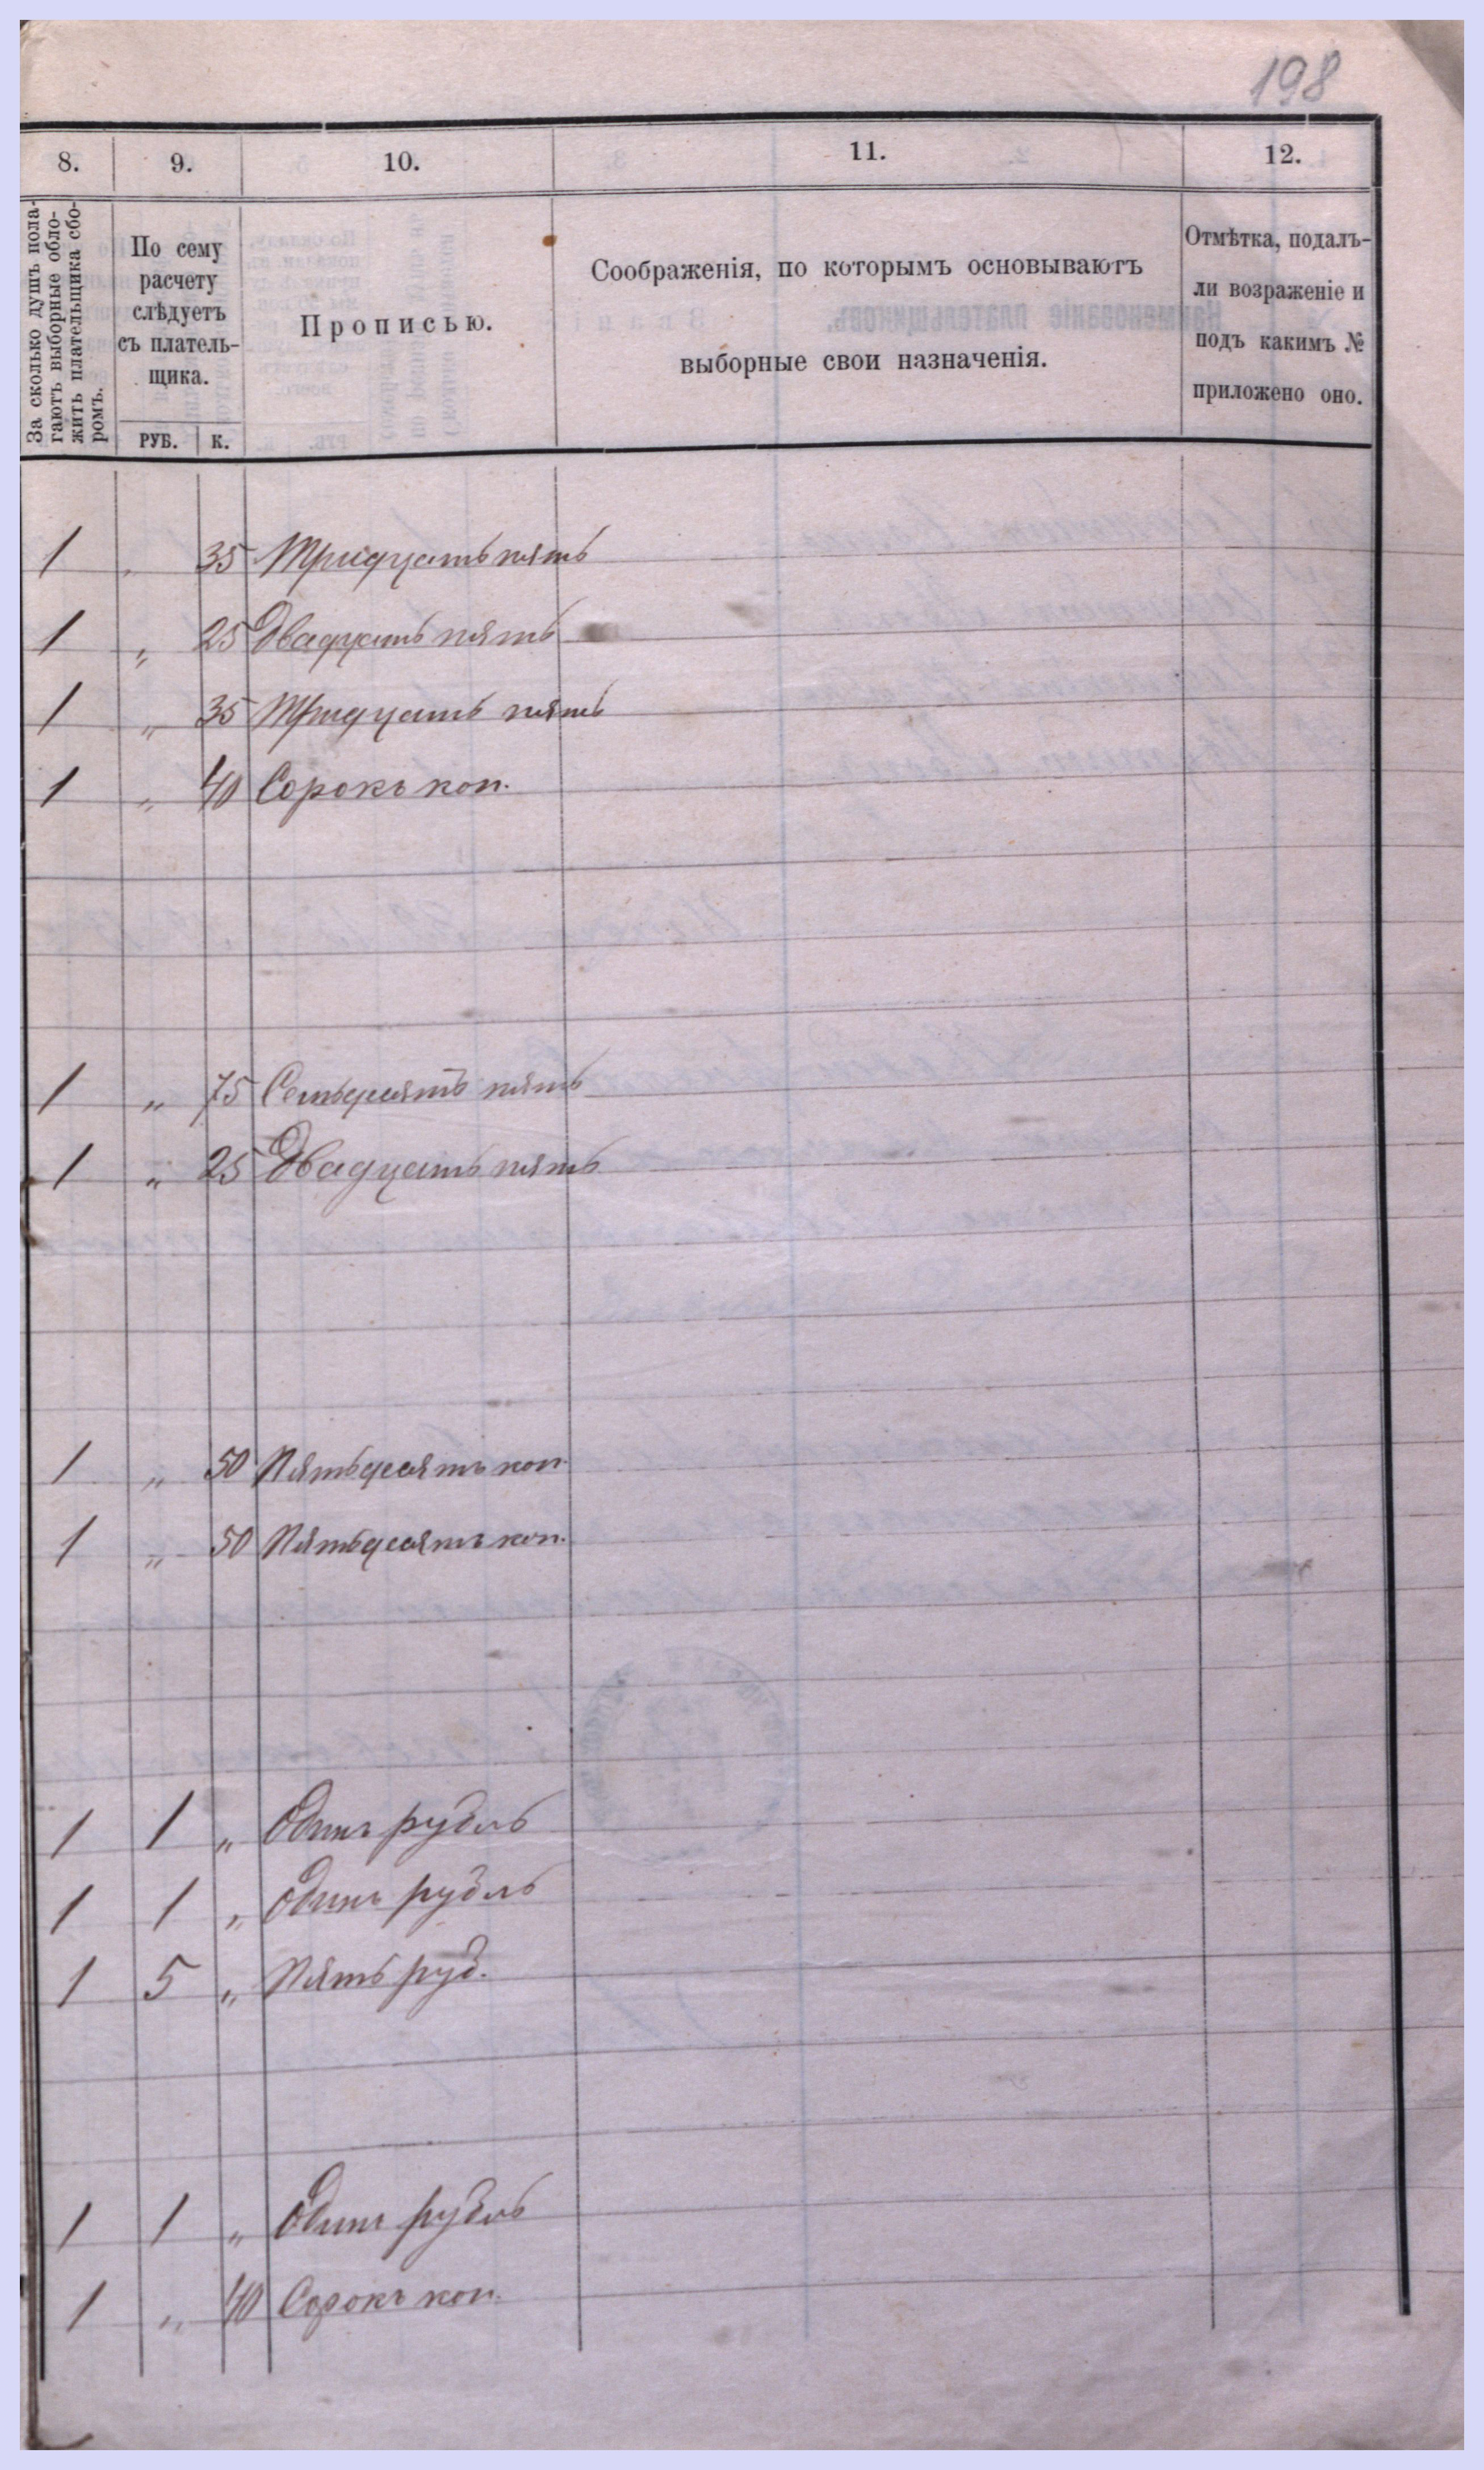 198
8. 9. 10. 11. 12.
За сколько душъ пола-
гаютъ выборные обло-
жить плательщика сбо-
ромъ.
По сему
расчету
слѣдуетъ
съ платель-
щика.
РУБ. К.
Прописью.
Соображенія, по которымъ основываютъ
выборные свои назначенія.
Отмѣтка, подалъ-
ли возраженіе и
подъ какимъ №
приложено оно.
1 „ 35 Тридцать пять
1 „ 25 Двадцать пять
1 „ 35 Тридцать пять
1 „ 40 Сорокъ коп.
1 „ 75 Семьдесятъ пять
1 „ 25 Двадцать пять
1 „ 50 Пятьдесятъ коп.
1 „ 50 Пятьдесятъ коп.
1 1 „ Одинъ рубль
1 1 „ Одинъ рубль
1 5 „ Пять руб.
1 1 „ Одинъ рубль
1 „ 40 Сорокъ коп.